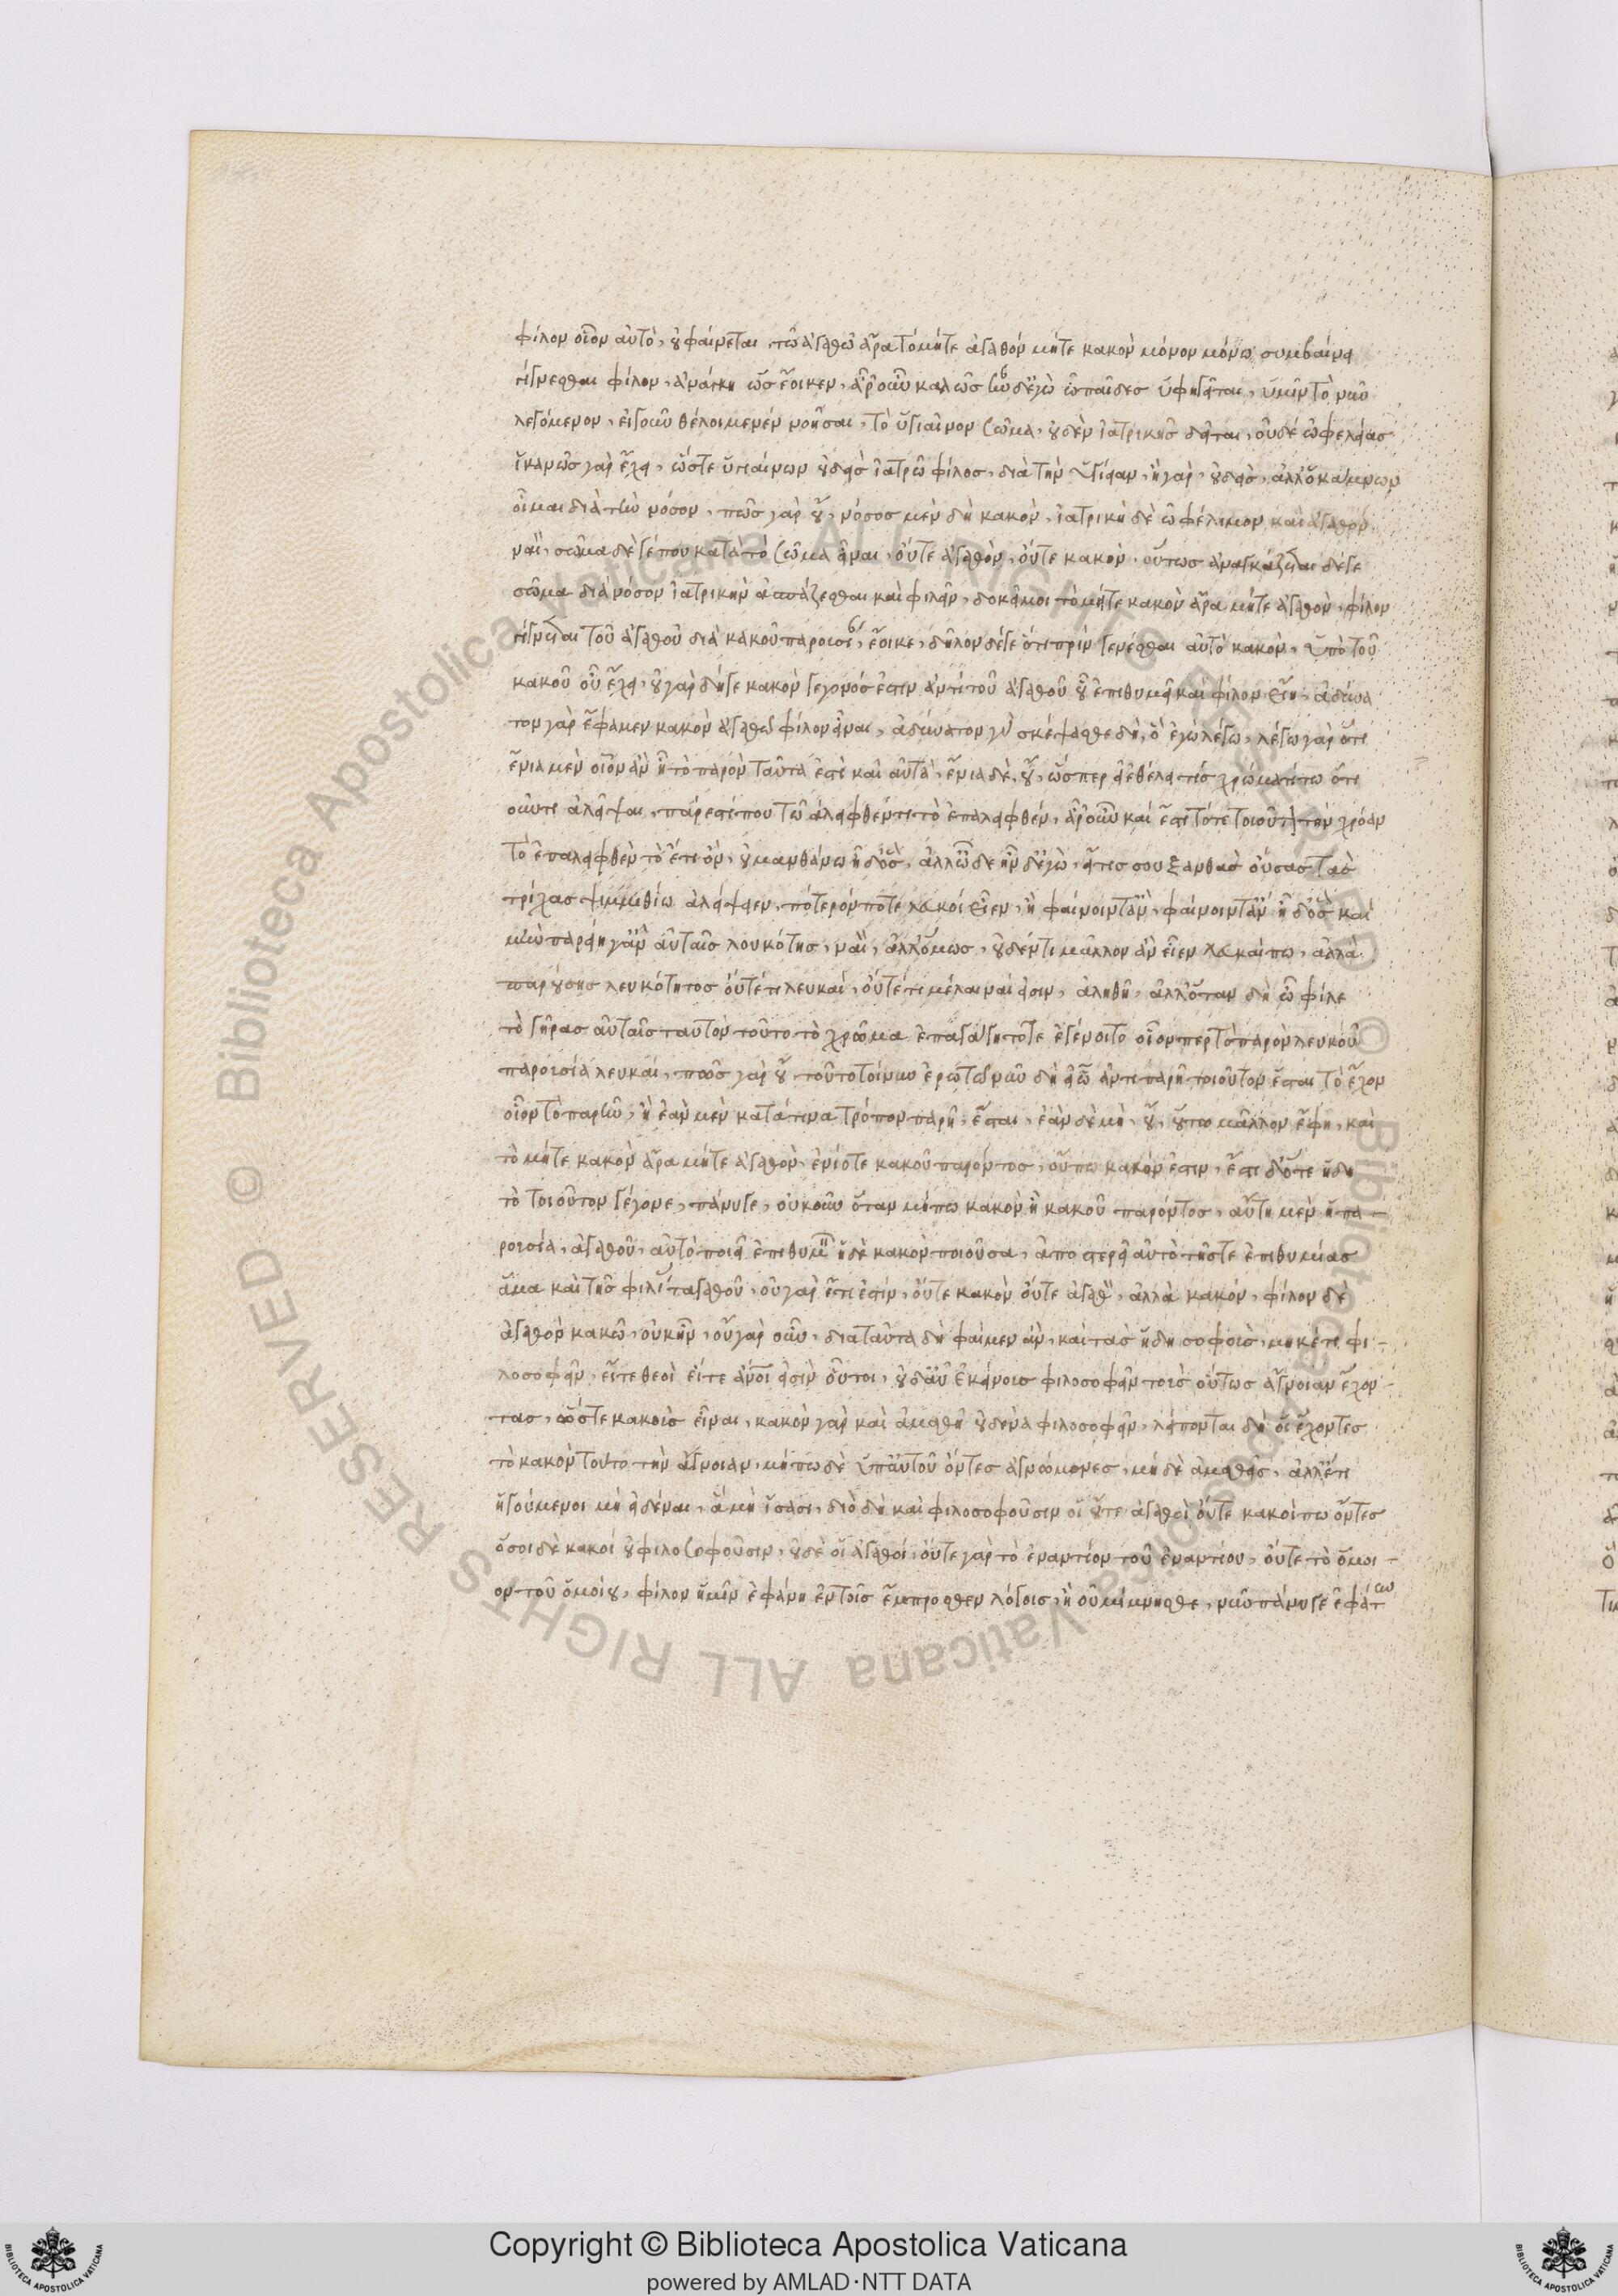 φίλον οἷον αὐτό, οὐ φαίνεται τῶ ἀγαθῶ ἄρα τὸ μήτε ἀγαθὸν μήτε κακὸν μόνον μόνω συμβαίνει
γίγνεσθαι φίλον, ἀνάγκη ὡς ἔοικεν, ἆρ' οὖν καλῶς ἦν δ' ἐγὼ ὦ παῖδες ὑφηγεῖται, ὑμῖν τὸ νῦν
λεγόμενον, εἰ γοῦν θέλοιμεν ἐννοῆσαι, τὸ ὑγιαῖνον σῶμα, οὐδὲν ἰατρικῆς δεῖται, οὐδὲ ὠφελείας
ἱκανῶς γὰρ ἔχει, ὥστε ὑγιαίνων οὐδεὶς ἰατρῶ φίλος, διὰ τὴν ὑγίειαν, ἢ γάρ, οὐδείς, ἀλλ' ὁ κάμνων
οἶμαι διὰ τὴν νόσον, πῶς γὰρ οὔ, νόσος μὲν δὴ κακόν, ἰατρικὴ δὲ ὠφέλιμον καὶ ἀγαθόν,
ναί, σῶμα δέ γέ που κατὰ τὸ σῶμα εἶναι, οὔτε ἀγαθόν, οὔτε κακόν, οὕτως ἀναγκάζεται δέ γε
σῶμα διὰ νόσον ἰατρικὴν ἀσπάζεσθαι καὶ φιλεῖν, δοκεῖ μοι τὸ μήτε κακὸν ἄρα μήτε ἀγαθόν, φίλον
γίγνεται τοῦ ἀγαθοῦ διὰ κακοῦ παρουσίαν, ἔοικε, δῆλον δέ γε ὅτι πρὶν γενέσθαι αὐτὸ κακὸν, ὑπὸ τοῦ
κακοῦ οὗ ἔχει, οὐ γὰρ δή γε κακὸν γεγονός ἐστιν ἀντὶ τοῦ ἀγαθοῦ οὗ ἐπιθυμεῖ καὶ φίλον εἴη, ἀδύνα
τον γὰρ ἔφαμεν κακὸν ἀγαθῶ φίλον εἶναι, ἀδύνατον γὰρ σκέψασθε δή, ὃ ἐγὼ λέγω, λέγω γὰρ ὅτι
ἔνια μὲν οἷον ἂν ἦ τὸ παρὸν ταῦτα ἐστὶ καὶ αὐτά, ἔνια δέ, οὔ, ὥσπερ εἰ ἐθέλει τις χρώματί τω ὅτι
οὖν τι ἀλεῖψαι, πάρεστί που τῶ ἀλειφθέντι τὸ ἐπαλειφθέν, ἆρ' οὖν καὶ ἔστι τότε τοιοῦτον τὴν χρόαν
τὸ ἐπαλειφθὲν τὸ ἔτι ὄν, οὐ μανθάνω ἦ δ' ὅς, ἀλλ' ὧδε ἦν δ' ἐγώ, εἴ τις σου ξανθὰς οὔσας τὰς
τρίχας ψιμμυθίω ἀλείψειεν, πότερόν ποτε λευκοί εἶεν, ἢ φαίνοιντ' ἄν, φαίνοιντ' ἄν ἦ δ' ὃς καὶ
μὴν παρείη γ' ἂν αὐταῖς λευκότης, ναί, ἀλλ' ὅμως, οὐδέν τι μᾶλλον ἂν εἶεν λευκαί πω, ἀλλὰ
παρούσης λευκότητος οὔτέ τι λευκαί, οὔτέ τι μέλαιναί εἰσιν, ἀληθῆ, ἀλλ' ὅταν δὴ ὦ φίλε
τὸ γῆρας αὐταῖς ταυτὸν τοῦτο τὸ χρῶμα ἐπαγάγη τότε ἐγένοιτο οἷον περ τὸ παρὸν λευκοῦ
παρουσία λευκαί, πῶς γὰρ οὔ τοῦτο τοίνυν ἐρωτῶ νῦν δὴ εἰ ὧ ἄν τι παρῆ τοιοῦτον ἔσται τὸ ἔχον
οἷον τὸ παρών, ἢ ἐὰν μὲν κατά τινα τρόπον παρῆ, ἔσται, ἐὰν δὲ μή, οὔ, οὕτω μᾶλλον ἔφη, καὶ
τὸ μήτε κακὸν ἄρα μήτε ἀγαθὸν, ἐνίοτε κακοῦ παρόντος, οὔπω κακόν ἐστιν, ἔστι δ' ὅτε ἤδη
τὸ τοιοῦτον γέγονε, πάνυ γε, οὐκοῦν ὅταν μήπω κακὸν ἦ κακοῦ παρόντος, αὕτη μὲν ἡ πα-
ρουσία, ἀγαθοῦ, αὐτὸ ποιεῖ ἐπιθυμεῖν ἡ δὲ κακὸν ποιοῦσα, ἀποστερεῖ αὐτὸ τῆς τε ἐπιθυμίας
ἅμα καὶ τῆς φιλίας τἀγαθοῦ, οὐ γὰρ ἔτι ἐστίν, οὔτε κακὸν οὔτε ἀγαθὸν, ἀλλὰ κακόν, φίλον δὲ
ἀγαθὸν κακῶ, οὐκ ἦν, οὐ γὰρ οὖν, διὰ ταῦτα δὴ φαῖμεν ἄν, καὶ τοὺς ἤδη σοφοὺς, μηκέτι φι-
λοσοφεῖν, εἴτε θεοὶ εἴτε ἄνοί εἰσιν οὗτοι, οὐδ' αὖ ἐκείνους φιλοσοφεῖν τοὺς οὕτως ἄγνοιαν ἔχον-
τας, ὥστε κακοὺς εἶναι, κακὸν γὰρ καὶ ἀμαθῆ οὐδένα φιλοσοφεῖν, λείπονται δὴ οἱ ἔχοντες
τὸ κακὸν τοῦτο τὴν ἄγνοιαν, μήπω δὲ ὑπ' αὐτοῦ ὄντες ἀγνώμονες, μὴ δὲ ἀμαθεῖς, ἀλλ' ἔτι
ἡγούμενοι μὴ εἰδέναι, ἃ μὴ ἴσασι, διὸ δὴ καὶ φιλοσοφοῦσιν οἱ οὔτε ἀγαθοὶ οὔτε κακοί πω ὄντες
ὅσοι δὲ κακοί οὐ φιλοσοφοῦσιν, οὐδὲ οἱ ἀγαθοί, οὔτε γὰρ τὸ ἐναντίον τοῦ ἐναντίου, οὔτε τὸ ὅμοι-
ον τοῦ ὁμοίου, φίλον ἡμῖν ἐφάνη ἐν τοῖς ἔμπροσθεν λόγοις, ἢ οὐ μέμνησθε, νῦν πάνυ γε ἐφάτ
Copyright © Biblioteca Apostolica Vaticana
powered by AMLAD·NTT DATA